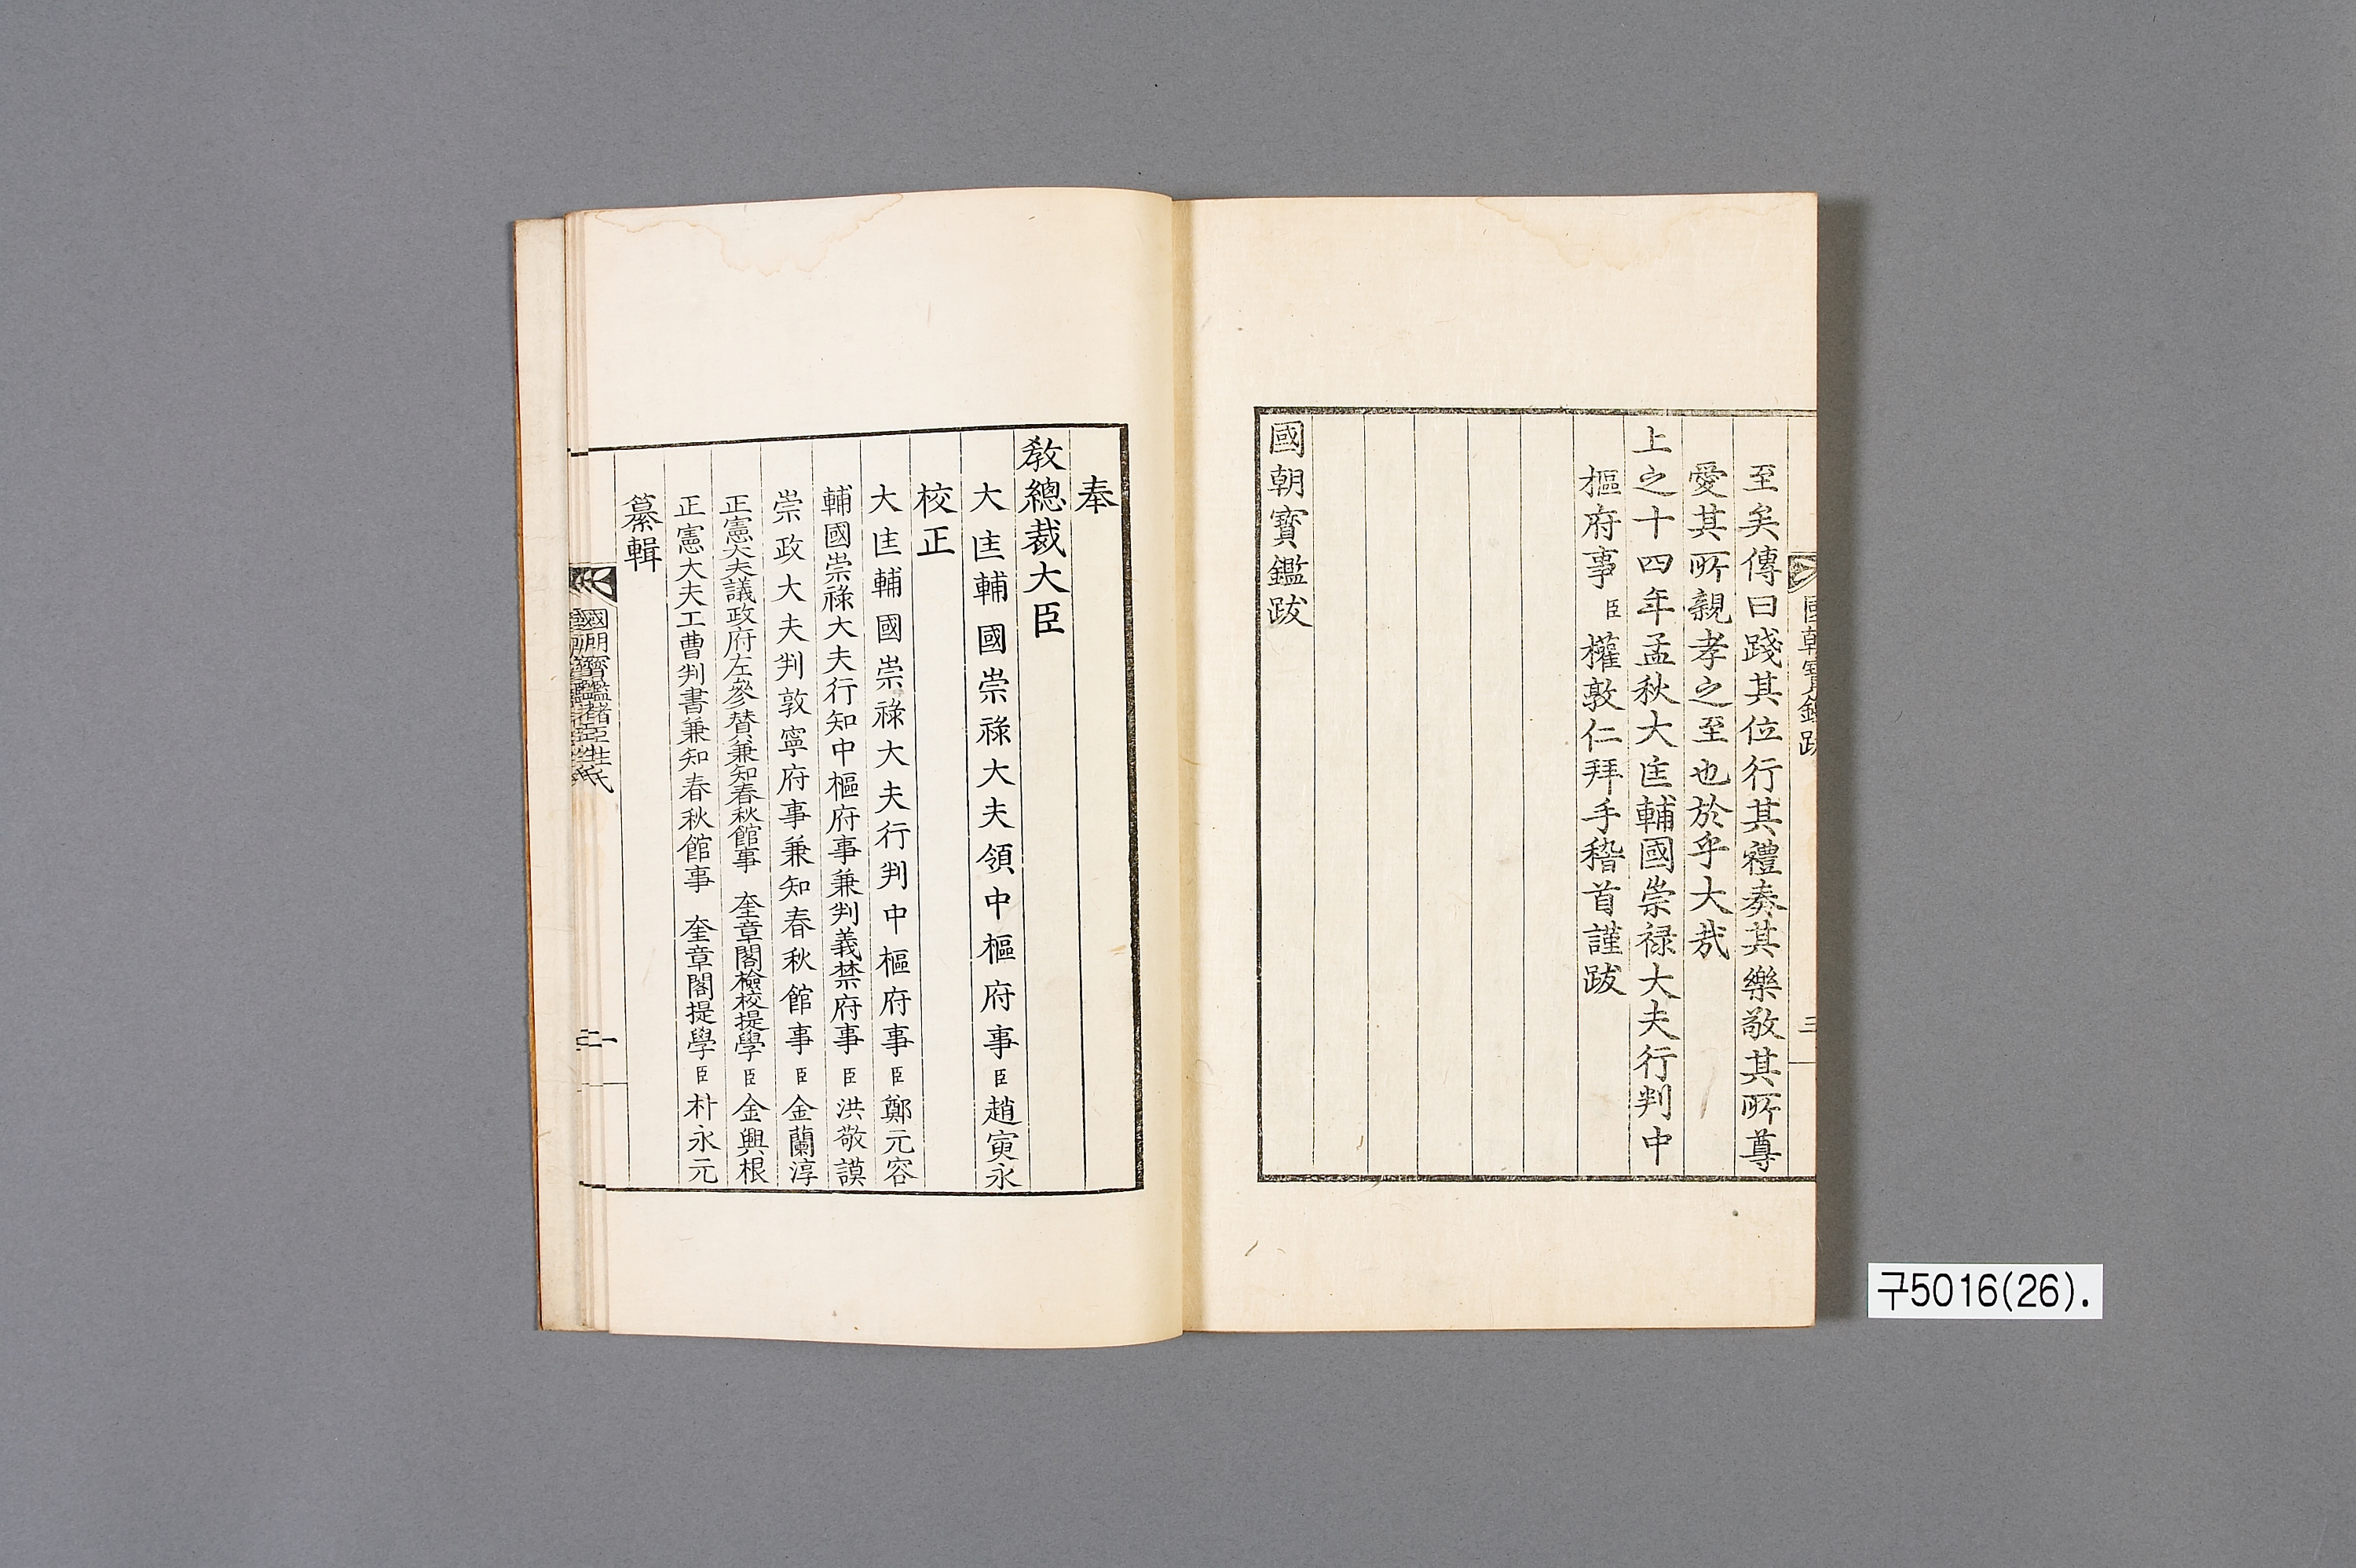 至矣傳曰踐其位行其禮奏其樂敬其所尊
愛其所親孝之至也於乎大哉
上之十四年孟秋大匡輔國崇祿大夫行判中
樞府事臣權敦仁拜手稽首謹跋
國朝寶鑑跋
國朝寶鑑跋
三
奉
教總裁大臣
大匡輔國崇祿大夫領中樞府事臣趙寅永
校正
大匡輔國崇祿大夫行判中樞府事臣鄭元容
輔國崇祿大夫行知中樞府事兼判義禁府事臣洪敬謨
崇政大夫判敦寧府事兼知春秋館事臣金蘭淳
正憲大夫議政府左參贊兼知春秋館事 奎章閣檢校提學臣金興根
正憲大夫工曹判書兼知春秋館事 奎章閣提學臣朴永元
纂輯
구5016(26).